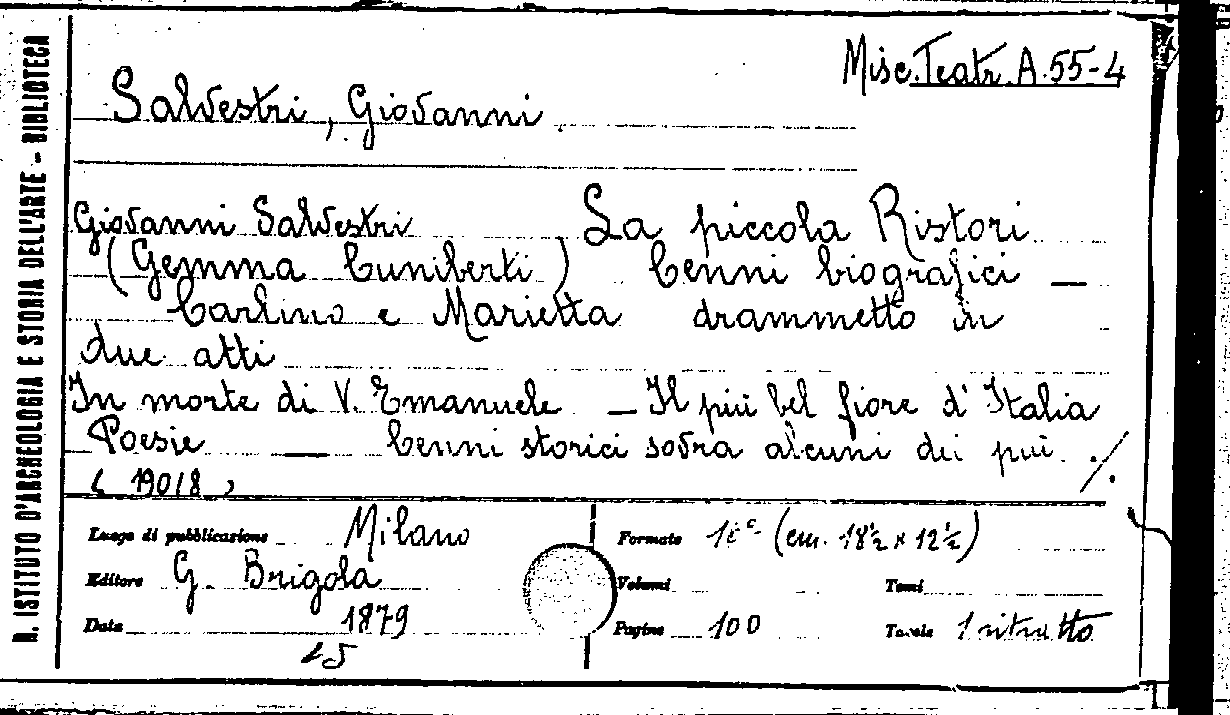 Misc. Teatr. A. 55-4
Salvestri, Giovanni.
Giovanni Salvestri La piccola Ristori
(Gemma Cuniberti) Cenni biografici —
Carlino e Marietta drammetto in
due atti
In morte di V. Emanuele — Il più bel fiore d'Italia
Poesie — Cenni storici sovra alcuni dei più ./.
( 19018 )
Luogo di pubblicazione Milano
Formato 16° (cm. 18½ x 12½)
Editore G. Brigola
Volumi Tomi
Data 1879
Pagine 100 Tavole 1 ritratto
R. ISTITUTO D'ARCHEOLOGIA E STORIA DELL'ARTE - BIBLIOTECA